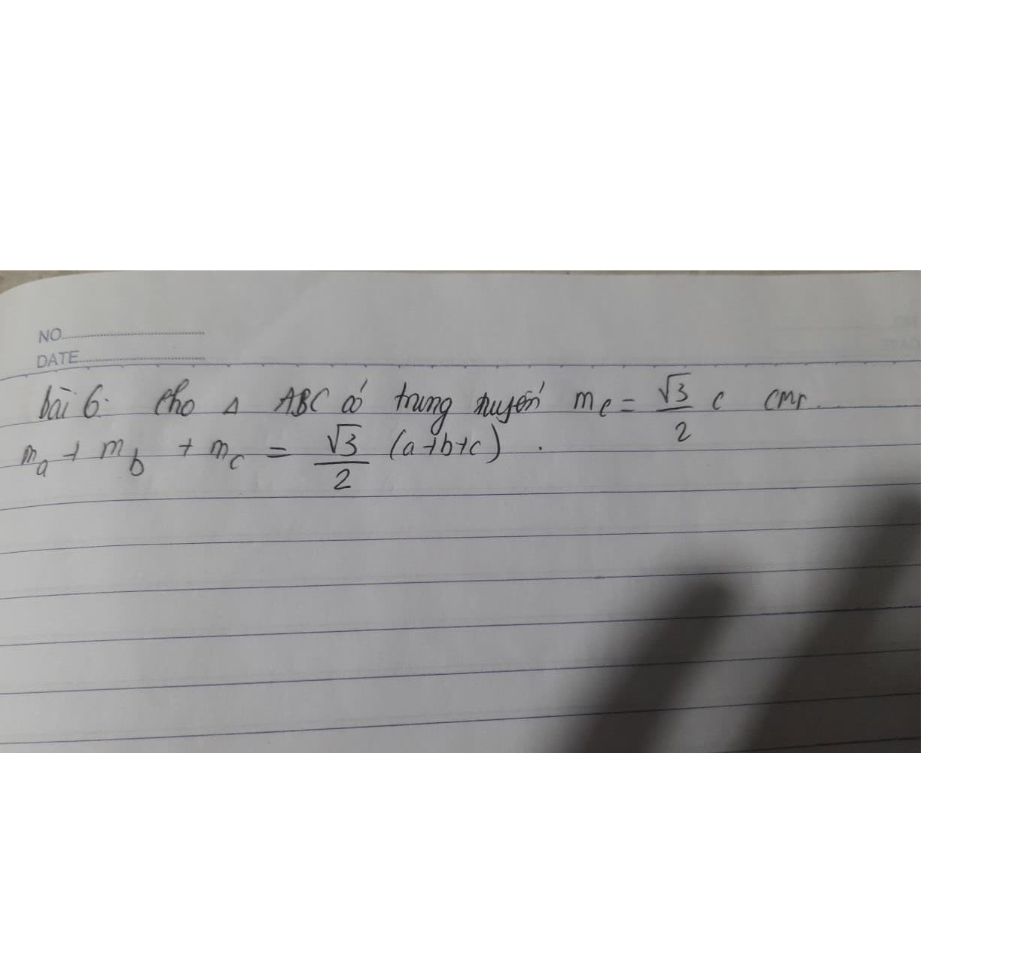 NO
DATE
bài 6: Cho Δ ABC có trung tuyến m_c = √3/2 c CMr.
m_a + m_b + m_c = √3/2 (a+b+c).